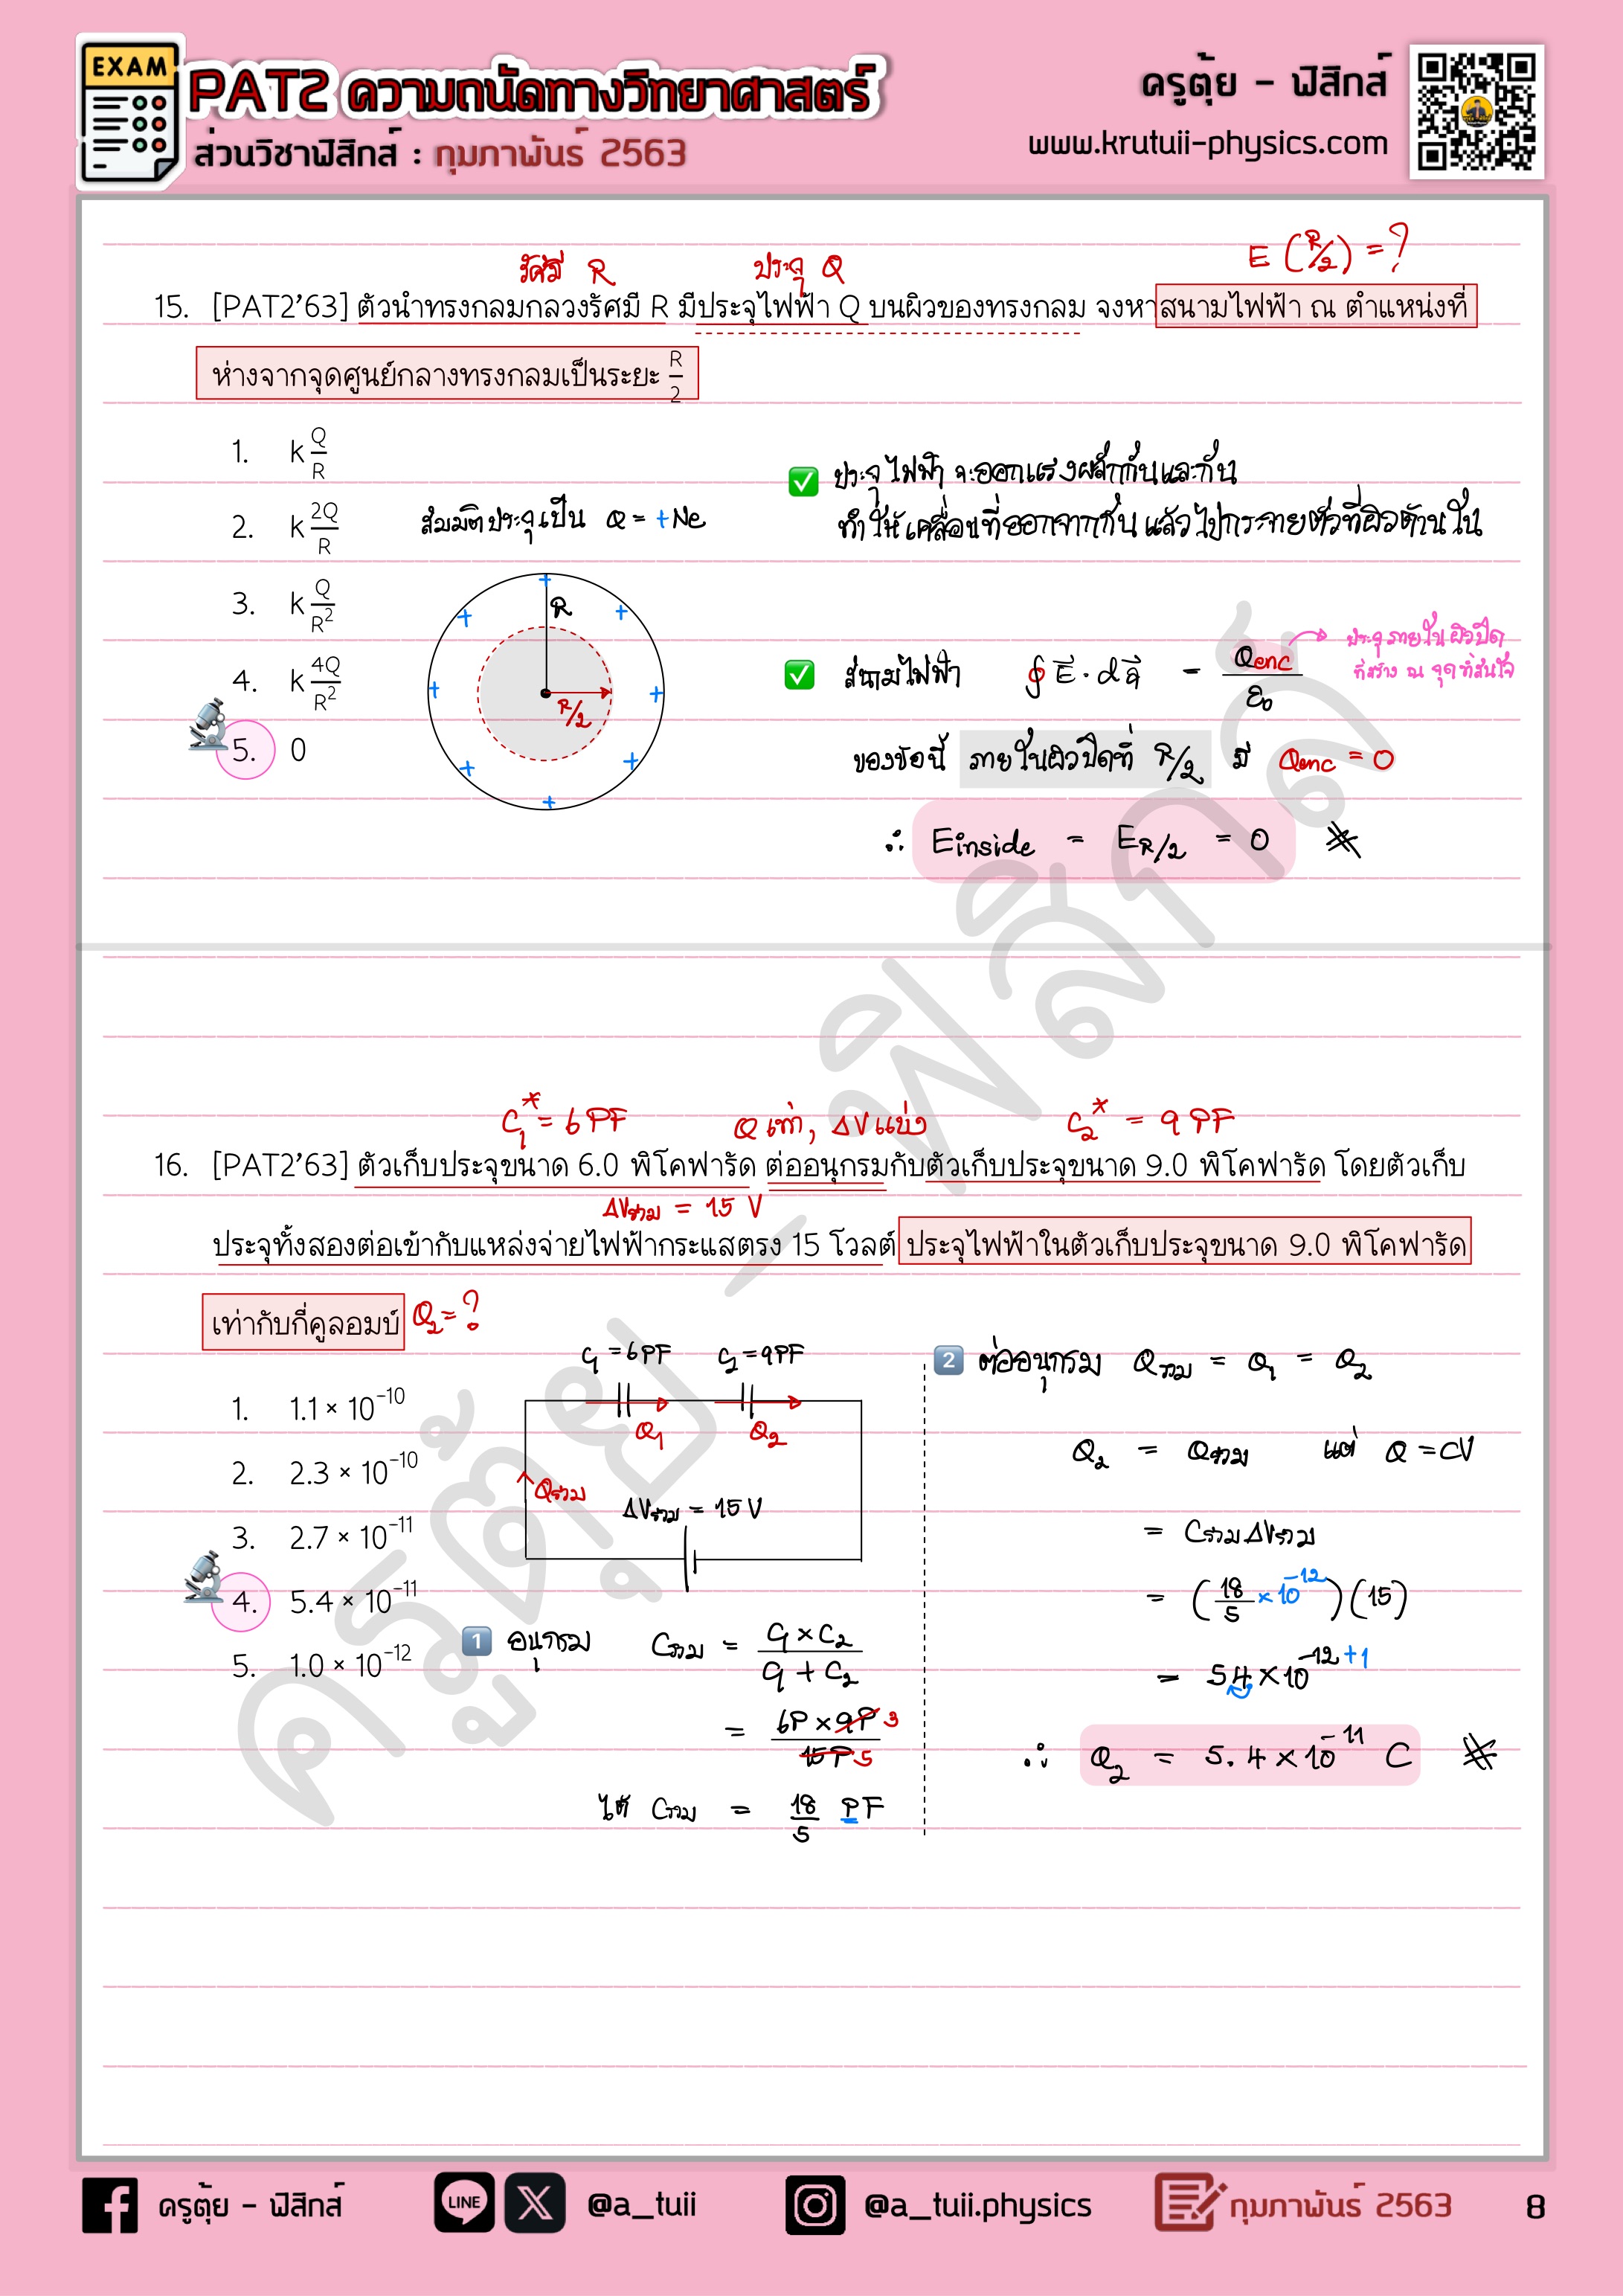 EXAM
PAT2 ความถนัดทางวิทยาศาสตร์
ส่วนวิชาฟิสิกส์ : กุมภาพันธ์ 2563
ครูตุ้ย - ฟิสิกส์
www.krutuii-physics.com
E (R/2) = ?
รัศมี R ประจุ Q
15. [PAT2'63] ตัวนำทรงกลมกลวงรัศมี R มีประจุไฟฟ้า Q บนผิวของทรงกลม จงหาสนามไฟฟ้า ณ ตำแหน่งที่
ห่างจากจุดศูนย์กลางทรงกลมเป็นระยะ R/2
1. k Q/R
2. k 2Q/R
3. k Q/R²
4. k 4Q/R²
5. 0
สมมติประจุเป็น Q = +Ne
R
R/2
✅ ประจุไฟฟ้า จะออกแรงผลักกันและกัน
ทำให้เคลื่อนที่ออกจากกัน แล้วไปกระจายตัวที่ผิวด้านใน
✅ สนามไฟฟ้า ∮ E⃗ · da⃗ = Qenc/ε₀
ประจุภายในผิวปิด
ที่สร้าง ณ จุดที่สนใจ
ของข้อนี้ ภายในผิวปิดที่ R/2 มี Qenc = 0
∴ Einside = E_R/2 = 0
C₁* = 6 PF Q เท่า, ΔV แบ่ง C₂* = 9 PF
16. [PAT2'63] ตัวเก็บประจุขนาด 6.0 พิโคฟารัด ต่ออนุกรมกับตัวเก็บประจุขนาด 9.0 พิโคฟารัด โดยตัวเก็บ
ΔVรวม = 15 V
ประจุทั้งสองต่อเข้ากับแหล่งจ่ายไฟฟ้ากระแสตรง 15 โวลต์ ประจุไฟฟ้าในตัวเก็บประจุขนาด 9.0 พิโคฟารัด
เท่ากับกี่คูลอมบ์ Q₂ = ?
1. 1.1 × 10⁻¹⁰
2. 2.3 × 10⁻¹⁰
3. 2.7 × 10⁻¹¹
4. 5.4 × 10⁻¹¹
5. 1.0 × 10⁻¹²
C₁ = 6PF C₂ = 9PF
Q₁ Q₂
Qรวม
ΔVรวม = 15 V
1 อนุกรม Cรวม = C₁ × C₂ / C₁ + C₂
= 6P × 9P 3 / 15P 5
ได้ Cรวม = 18/5 PF
2 ต่ออนุกรม Qรวม = Q₁ = Q₂
Q₂ = Qรวม แต่ Q = CV
= Cรวม ΔVรวม
= (18/5 × 10⁻¹²)(15)
= 54 × 10⁻¹²⁺¹
∴ Q₂ = 5.4 × 10⁻¹¹ C
ครูตุ้ย - ฟิสิกส์
ครูตุ้ย - ฟิสิกส์
LINE
@a_tuii
@a_tuii.physics
กุมภาพันธ์ 2563
8